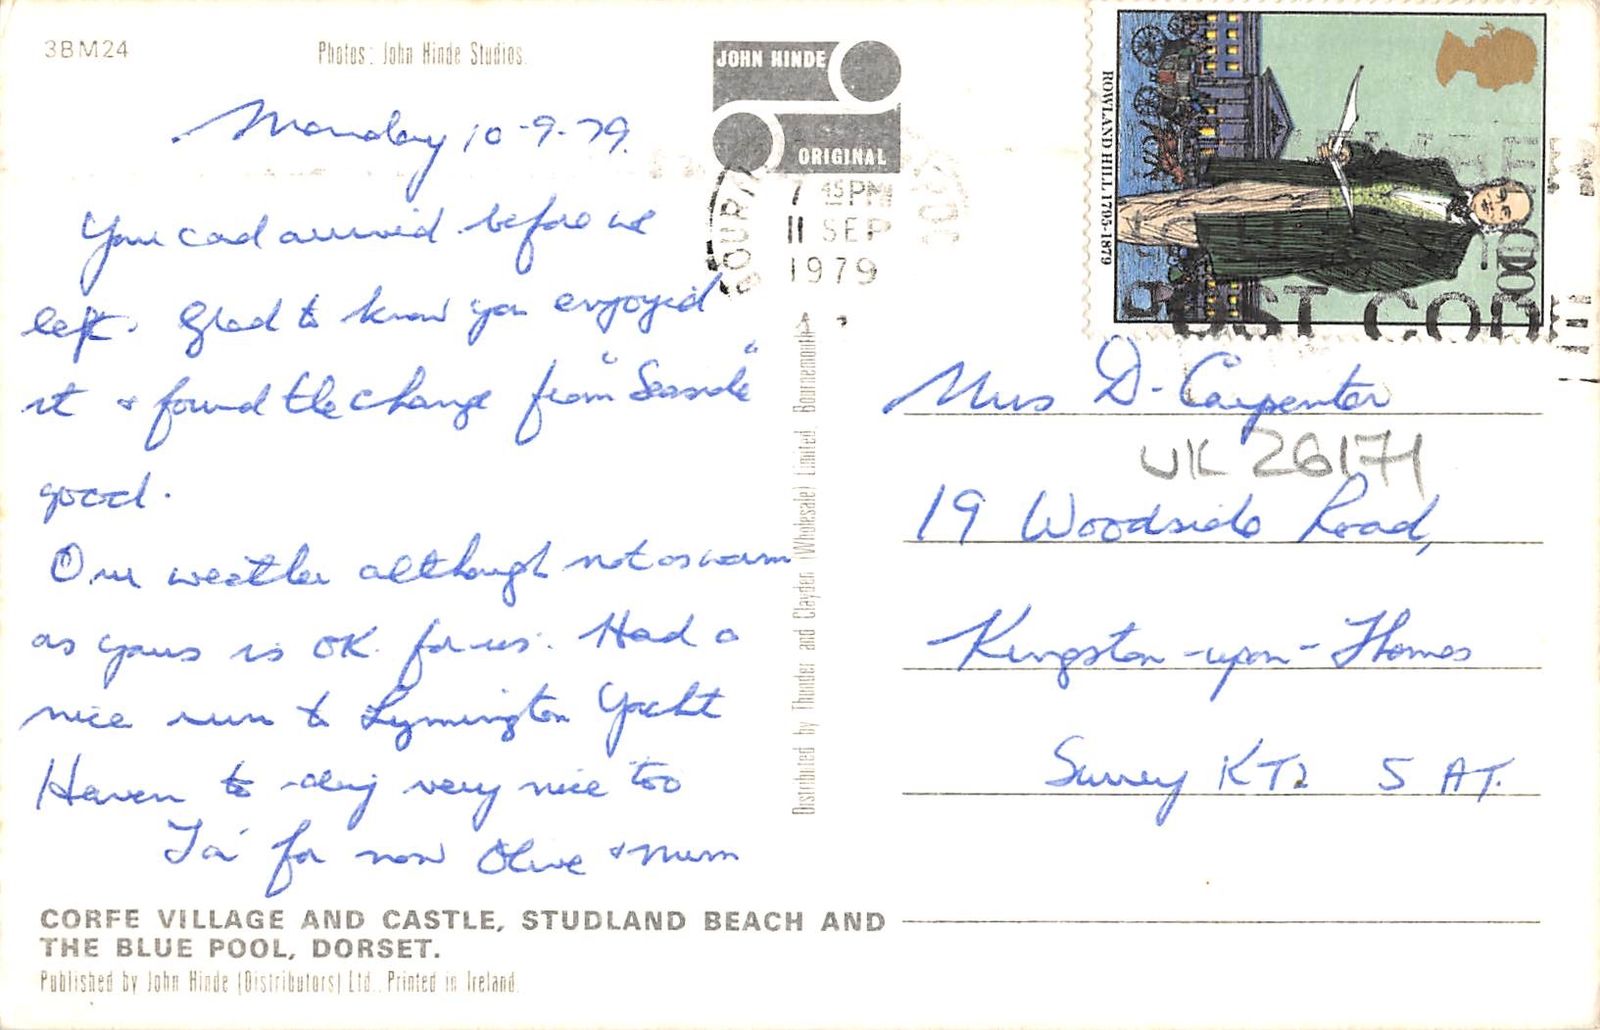 3BM24
Photos: John Hinde Studios.
JOHN HINDE
ORIGINAL
Monday 10-9-79.
Your card arrived before we
left. Glad to know you enjoyed
it & found the change from "Seaside"
good.
Our weather although not as warm
as yours is OK for us. Had a
nice run to Lymington Yacht
Haven to-day very nice too
Ta for now Olive & Mum
CORFE VILLAGE AND CASTLE, STUDLAND BEACH AND
THE BLUE POOL, DORSET.
Published by John Hinde (Distributors) Ltd., Printed in Ireland.
Distributed by Thunder and Clayden (Wholesale) Limited, Bournemouth
7 45PM
11 SEP
1979
ROWLAND HILL 1795-1879
POST CODE
Mrs D. Carpenter
UK 26174
19 Woodside Road,
Kingston-upon-Thames
Surrey KT2 5 AT.